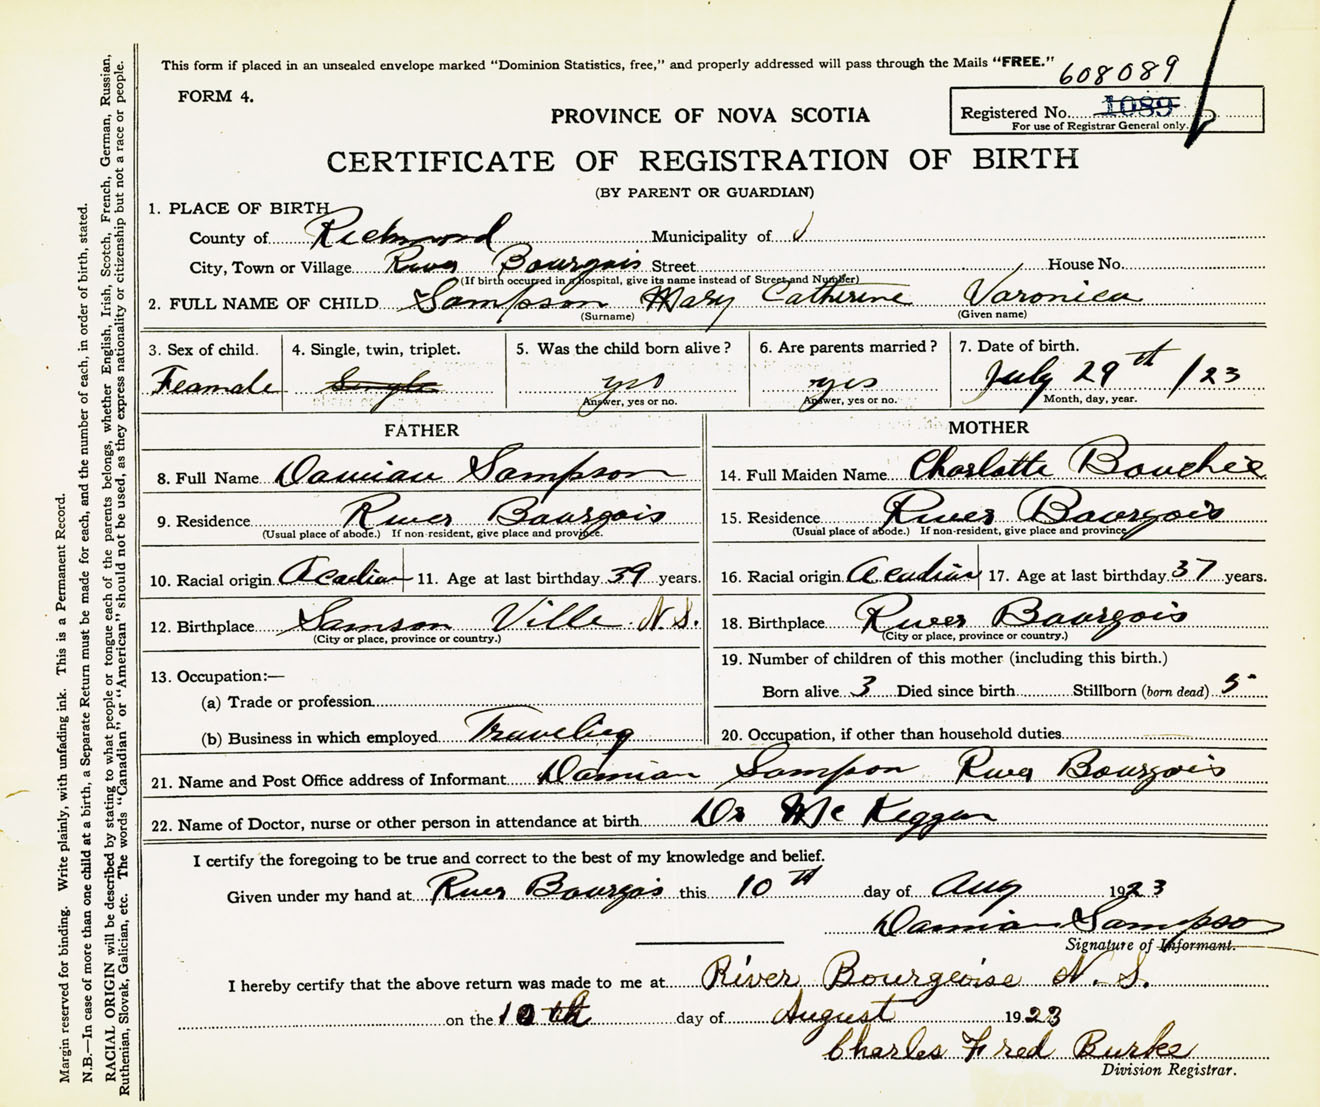 This form if placed in an unsealed envelope marked "Dominion Statistics, free," and properly addressed will pass through the Mails "FREE."
608089
FORM 4.
Registered No. 1089
For use of Registrar General only.
PROVINCE OF NOVA SCOTIA
CERTIFICATE OF REGISTRATION OF BIRTH
(BY PARENT OR GUARDIAN)
1. PLACE OF BIRTH
County of Richmond Municipality of
City, Town or Village River Bourgois Street House No.
(If birth occurred in a hospital, give its name instead of Street and Number)
2. FULL NAME OF CHILD Sampson Mary Catherine Varonica
(Surname) (Given name)
3. Sex of child. 4. Single, twin, triplet. 5. Was the child born alive? 6. Are parents married? 7. Date of birth.
Feamale Single yes yes July 29th /23
Answer, yes or no. Answer, yes or no. Month, day, year.
FATHER MOTHER
8. Full Name Damian Sampson 14. Full Maiden Name Charlotte Bouchie
9. Residence River Bourgois 15. Residence River Bourgois
(Usual place of abode.) If non-resident, give place and province. (Usual place of abode.) If non-resident, give place and province.
10. Racial origin Acadian 11. Age at last birthday 39 years. 16. Racial origin Acadian 17. Age at last birthday 37 years.
12. Birthplace Samson Ville N.S. 18. Birthplace River Bourgois
(City or place, province or country.) (City or place, province or country.)
19. Number of children of this mother (including this birth.)
13. Occupation:—
(a) Trade or profession Born alive 3 Died since birth Stillborn (born dead) 5
(b) Business in which employed Traveling 20. Occupation, if other than household duties
21. Name and Post Office address of Informant Damian Sampson River Bourgois
22. Name of Doctor, nurse or other person in attendance at birth Dr McKeggan
I certify the foregoing to be true and correct to the best of my knowledge and belief.
Given under my hand at River Bourgois this 10th day of Aug 1923
Damian Sampson
Signature of Informant.
I hereby certify that the above return was made to me at River Bourgeoise N.S.
on the 10th day of August 1923
Charles Fred Burke
Division Registrar.
Margin reserved for binding. Write plainly, with unfading ink. This is a Permanent Record.
N.B.—In case of more than one child at a birth, a Separate Return must be made for each, and the number of each, in order of birth, stated.
RACIAL ORIGIN will be described by stating to what people or tongue each of the parents belongs, whether English, Irish, Scotch, French, German, Russian,
Ruthenian, Slovak, Galician, etc. The words "Canadian" or "American" should not be used, as they express nationality or citizenship but not a race or people.